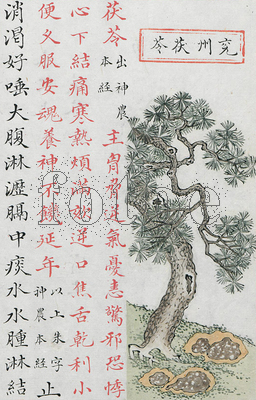 兗州茯苓
茯苓出神農本經主胷脅逆氣憂恚驚邪恐悸
心下結痛寒熱煩滿欬逆口焦舌乾利小
便久服安魂養神不饑延年以上朱字神農本經止
消渴好唾大腹淋瀝膈中痰水水腫淋結
fotoe